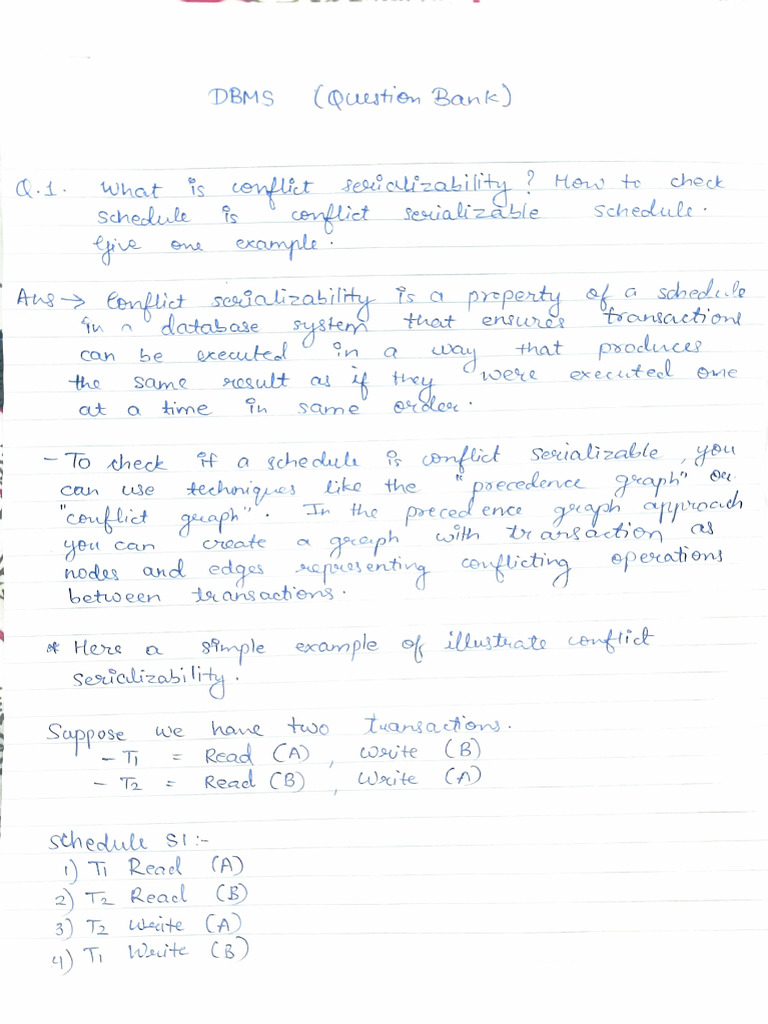 DBMS (Question Bank)
Q.1. What is conflict serializability? How to check
schedule is conflict serializable schedule.
Give one example.
Ans → Conflict serializability is a property of a schedule
in a database system that ensures transactions
can be executed in a way that produces
the same result as if they were executed one
at a time in same order.
- To check if a schedule is conflict serializable, you
can use techniques like the "precedence graph" or
"conflict graph". In the precedence graph approach
you can create a graph with transaction as
nodes and edges representing conflicting operations
between transactions.
* Here a simple example of illustrate conflict
serializability.
Suppose we have two transactions.
- T1 = Read (A), Write (B)
- T2 = Read (B), Write (A)
Schedule S1:-
1) T1 Read (A)
2) T2 Read (B)
3) T2 Write (A)
4) T1 Write (B)